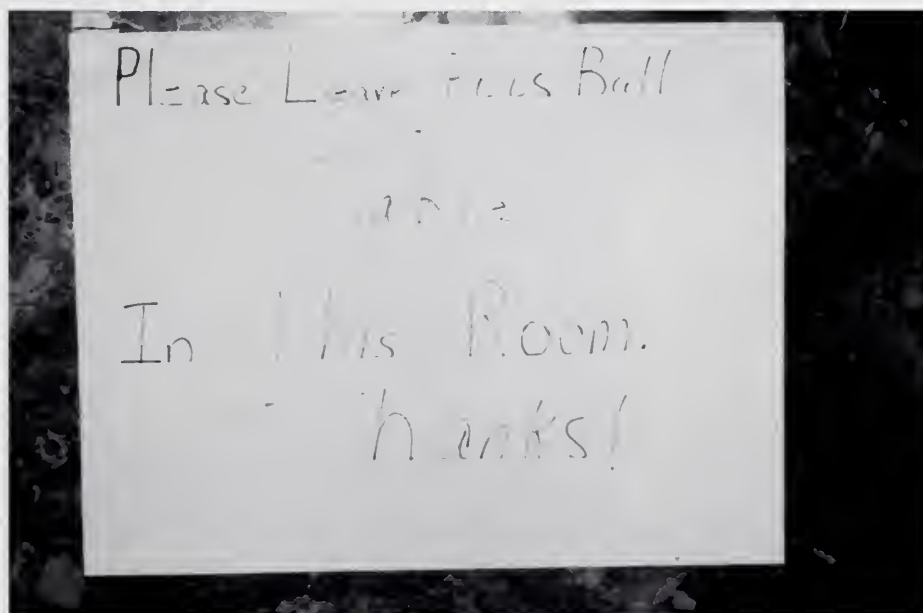 Please Leave Foos Ball
In This Room.
Thanks!